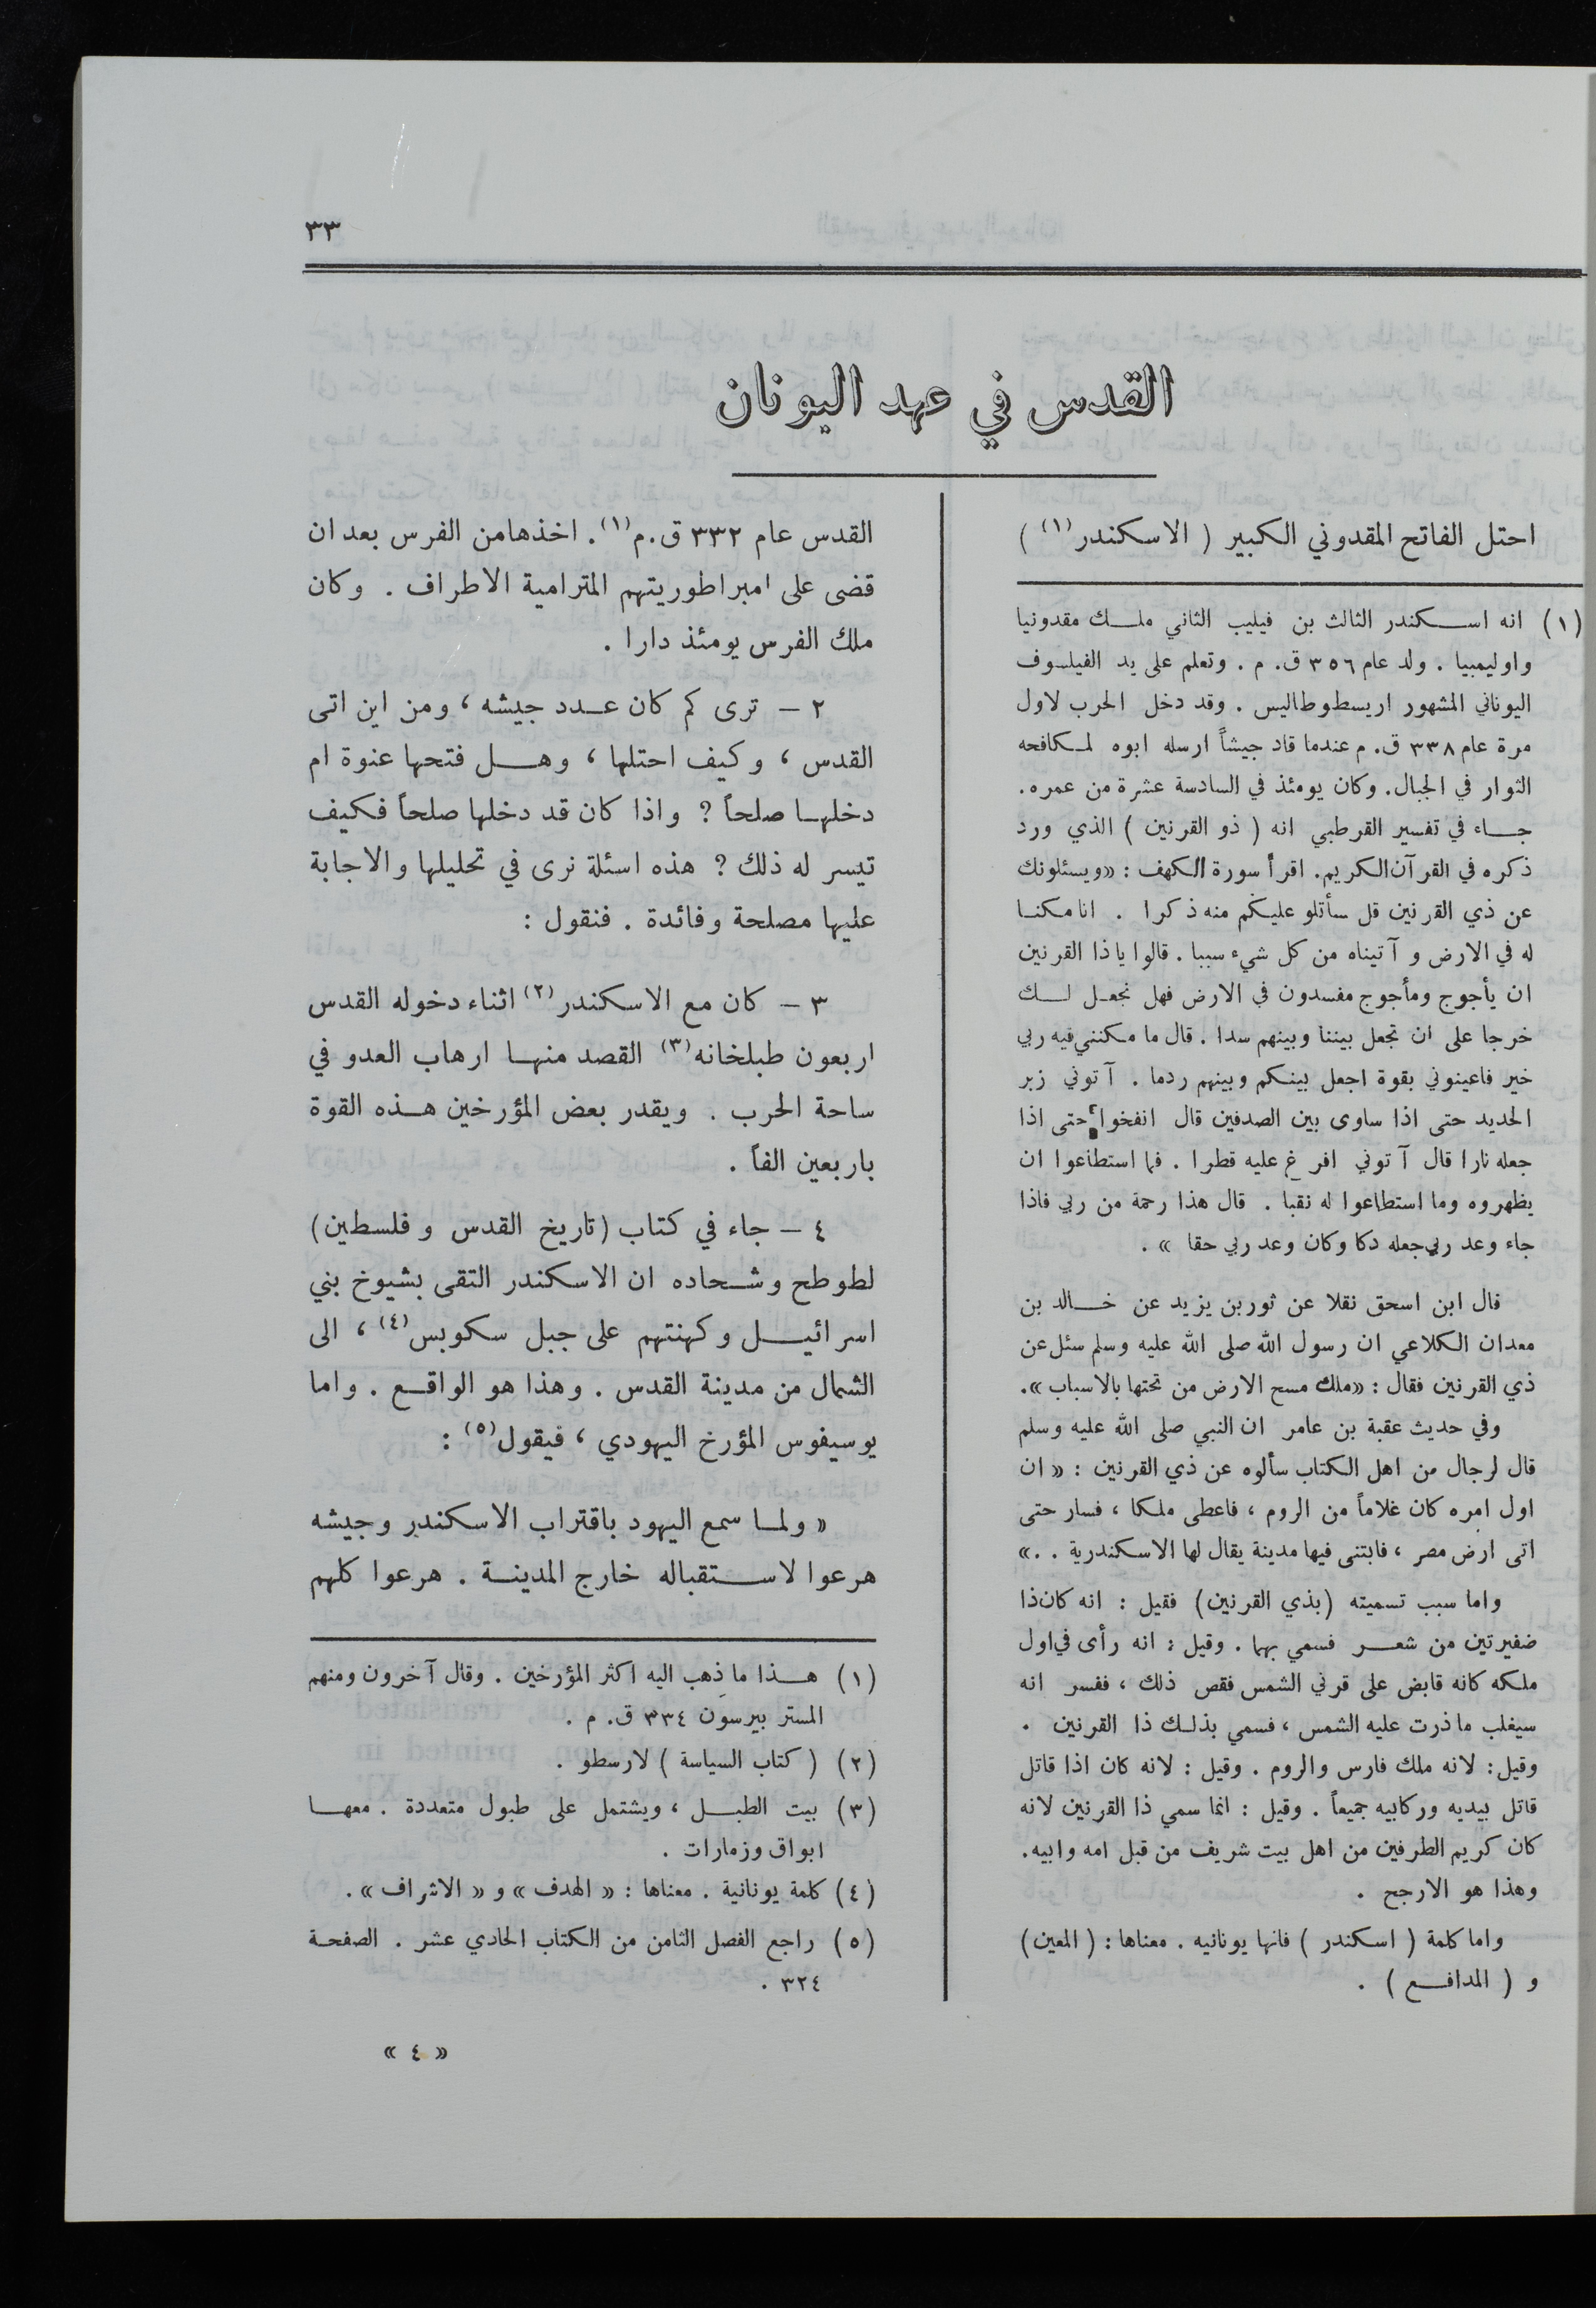 ٣٣
القدس في عهد اليونان
احتل الفاتح المقدوني الكبير ( الاسكندر(١) )
(١) انه اسكندر الثالث بن فيليب الثاني ملك مقدونيا
واوليمبيا . ولد عام ٣٥٦ ق. م . وتعلم على يد الفيلسوف
اليوناني المشهور اريسطوطاليس . وقد دخل الحرب لاول
مرة عام ٣٣٨ ق. م عندما قاد جيشاً ارسله ابوه لمكافحه
الثوار في الجبال. وكان يومئذ في السادسة عشرة من عمره.
جاء في تفسير القرطبي انه ( ذو القرنين ) الذي ورد
ذكره في القرآن الكريم. اقرأ سورة الكهف : «ويسئلونك
عن ذي القرنين قل سأتلو عليكم منه ذكرا . انا مكنا
له في الارض و آتيناه من كل شيء سببا . قالوا ياذا القرنين
ان يأجوج ومأجوج مفسدون في الارض فهل نجعل لك
خرجا على ان تجعل بيننا وبينهم سدا . قال ما مكنني فيه ربي
خير فاعينوني بقوة اجعل بينكم وبينهم ردما . آتوني زبر
الحديد حتى اذا ساوى بين الصدفين قال انفخوا حتى اذا
جعله نارا قال آتوني افرغ عليه قطرا . فما استطاعوا ان
يظهروه وما استطاعوا له نقبا . قال هذا رحمة من ربي فاذا
جاء وعد ربي جعله دكا وكان وعد ربي حقا » .
قال ابن اسحق نقلا عن ثور بن يزيد عن خالد بن
معدان الكلاعي ان رسول الله صلى الله عليه وسلم سئل عن
ذي القرنين فقال : «ملك مسح الارض من تحتها بالاسباب».
وفي حديث عقبة بن عامر ان النبي صلى الله عليه وسلم
قال لرجال من اهل الكتاب سألوه عن ذي القرنين : « ان
اول امره كان غلاماً من الروم ، فاعطى ملكا ، فسار حتى
اتى ارض مصر ، فابتنى فيها مدينة يقال لها الاسكندرية . .»
واما سبب تسميته (بذي القرنين) فقيل : انه كان ذا
ضفيرتين من شعر فسمي بهما . وقيل : انه رأى في اول
ملكه كانه قابض على قرني الشمس فقص ذلك ، ففسر انه
سيغلب ما ذرت عليه الشمس ، فسمي بذلك ذا القرنين .
وقيل : لانه ملك فارس والروم . وقيل : لانه كان اذا قاتل
قاتل بيديه وركابيه جميعاً . وقيل : انما سمي ذا القرنين لانه
كان كريم الطرفين من اهل بيت شريف من قبل امه وابيه.
وهذا هو الارجح .
واما كلمة ( اسكندر ) فانها يونانيه . معناها : ( المعين )
و ( المدافع ) .
القدس عام ٣٣٢ ق.م(١) . اخذها من الفرس بعد ان
قضى على امبراطوريتهم المترامية الاطراف . وكان
ملك الفرس يومئذ دارا .
٢ – ترى كم كان عدد جيشه ، ومن اين اتى
القدس ، وكيف احتلها ، وهل فتحها عنوة ام
دخلها صلحاً ? واذا كان قد دخلها صلحاً فكيف
تيسر له ذلك ? هذه اسئلة نرى في تحليلها والاجابة
عليها مصلحة وفائدة . فنقول :
٣ – كان مع الاسكندر(٢) اثناء دخوله القدس
اربعون طبلخانه(٣) القصد منها ارهاب العدو في
ساحة الحرب . ويقدر بعض المؤرخين هذه القوة
باربعين الفاً .
٤ – جاء في كتاب (تاريخ القدس و فلسطين)
لطوطح وشحاده ان الاسكندر التقى بشيوخ بني
اسرائيل وكهنتهم على جبل سكوبس(٤) ، الى
الشمال من مدينة القدس . وهذا هو الواقع . واما
يوسيفوس المؤرخ اليهودي ، فيقول(٥) :
« ولما سمع اليهود باقتراب الاسكندر وجيشه
هرعوا لاستقباله خارج المدينة . هرعوا كلهم
(١) هذا ما ذهب اليه اكثر المؤرخين . وقال آخرون ومنهم
المستر بيرسون ٣٣٤ ق. م .
(٢) ( كتاب السياسة ) لارسطو .
(٣) بيت الطبل ، ويشتمل على طبول متعددة . معها
ابواق وزمارات .
(٤) كلمة يونانية . معناها : « الهدف » و « الاشراف » .
(٥) راجع الفصل الثامن من الكتاب الحادي عشر . الصفحة
٣٢٤ .
« ٤ »